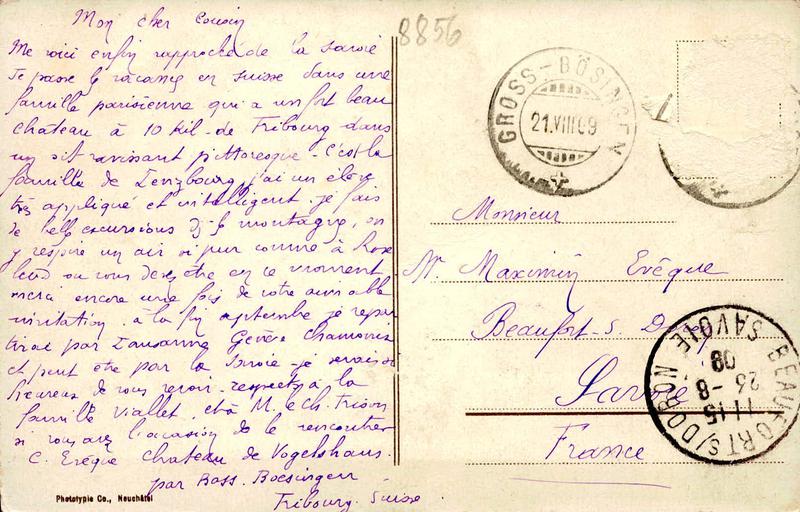 Mon cher Cousin
Me voici enfin rapproché de la Savoie
Je passe les vacances en Suisse dans une
famille parisienne qui a un fort beau
chateau à 10 kil. de Fribourg dans
un sit ravissant pittoresque - C'est la
famille de Lenzbourg, j'ai un élève
très appliqué et intelligent. je fais
de belles excursions ds la montagne, on
y respire un air si pur comme à Rose
lend ou vous devez être en ce moment
merci encore une fois de votre aimable
invitation. à la fin septembre je repar
tirai par Lausanne Genève Chamonix
et peut être par la Savoie je serais si
heureux de vous revoir. respects à la
famille Viallet, et à M. le Ch.
si vous avez l'occasion de le rencontrer
C. Evêque chateau de Vogelshaus.
par Boss. Boesingen
Fribourg. Suisse.
Phototypie Co., Neuchâtel
8856
GROSS-BÖSINGEN
21.VIII 09
Monsieur
M. Maximin Evêque
Beaufort-s. Doron
Savoie
France
BEAUFORT S/DORON
SAVOIE
11 15
26-8
09